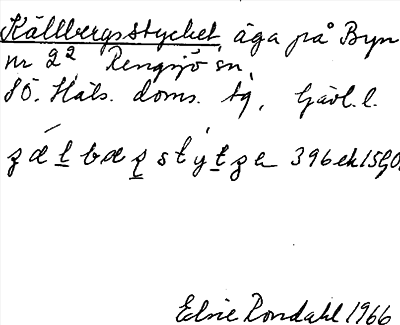 Källbergsstycket, äga på Byn
nr 2², Rengsjö sn,
SÖ. Häls. doms. tg, Gävl. l.
396ek15G0
Elsie Rondahl 1966